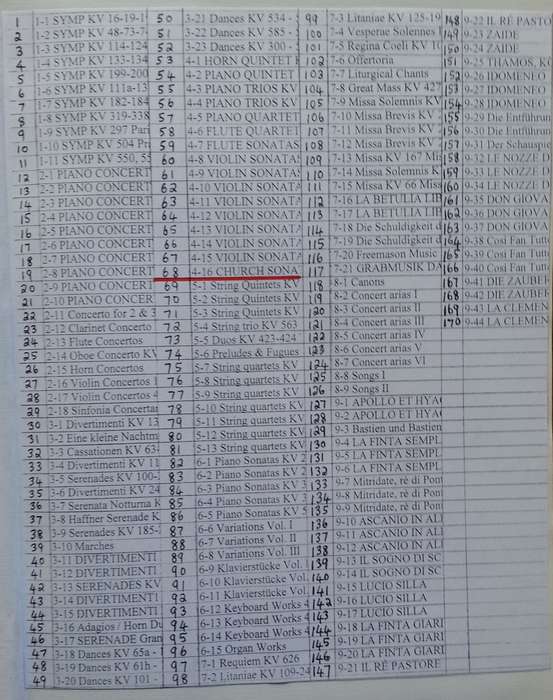 1 1-1 SYMP KV 16-19-1
2 1-2 SYMP KV 48-73-7
3 1-3 SYMP KV 114-124
4 1-4 SYMP KV 133-134
5 1-5 SYMP KV 199-200
6 1-6 SYMP KV 111a-13
7 1-7 SYMP KV 182-184
8 1-8 SYMP KV 319-338
9 1-9 SYMP KV 297 Pari
10 1-10 SYMP KV 504 Pr
11 1-11 SYMP KV 550, 55
12 2-1 PIANO CONCERT
13 2-2 PIANO CONCERT
14 2-3 PIANO CONCERT
15 2-4 PIANO CONCERT
16 2-5 PIANO CONCERT
17 2-6 PIANO CONCERT
18 2-7 PIANO CONCERT
19 2-8 PIANO CONCERT
20 2-9 PIANO CONCERT
21 2-10 PIANO CONCER
22 2-11 Concerto for 2 & 3
23 2-12 Clarinet Concerto
24 2-13 Flute Concertos
25 2-14 Oboe Concerto KV
26 2-15 Horn Concertos
27 2-16 Violin Concertos
28 2-17 Violin Concertos 4
29 2-18 Sinfonia Concertan
30 3-1 Divertimenti KV 13
31 3-2 Eine kleine Nachtm
32 3-3 Cassationen KV 63-
33 3-4 Divertimenti KV 11
34 3-5 Serenades KV 100-
35 3-6 Divertimenti KV 24
36 3-7 Serenata Notturna K
37 3-8 Haffner Serenade K
38 3-9 Serenades KV 185-
39 3-10 Marches
40 3-11 DIVERTIMENTI
41 3-12 DIVERTIMENTI
42 3-13 SERENADES KV
43 3-14 DIVERTIMENTI
44 3-15 DIVERTIMENTI
45 3-16 Adagios / Horn Du
46 3-17 SERENADE Gran
47 3-18 Dances KV 65a -
48 3-19 Dances KV 61h -
49 3-20 Dances KV 101 -
50 3-21 Dances KV 534 -
51 3-22 Dances KV 585 -
52 3-23 Dances KV 300 -
53 4-1 HORN QUINTET
54 4-2 PIANO QUINTET
55 4-3 PIANO TRIOS KV
56 4-4 PIANO TRIOS KV
57 4-5 PIANO QUARTET
58 4-6 FLUTE QUARTET
59 4-7 FLUTE SONATAS
60 4-8 VIOLIN SONATAS
61 4-9 VIOLIN SONATAS
62 4-10 VIOLIN SONATA
63 4-11 VIOLIN SONATA
64 4-12 VIOLIN SONATA
65 4-13 VIOLIN SONATA
66 4-14 VIOLIN SONATA
67 4-15 VIOLIN SONATA
68 4-16 CHURCH SON
69 5-1 String Quintets KV
70 5-2 String Quintets KV
71 5-3 String Quintets KV
72 5-4 String trio KV 563
73 5-5 Duos KV 423-424
74 5-6 Preludes & Fugues
75 5-7 String quartets KV
76 5-8 String quartets KV
77 5-9 String quartets KV
78 5-10 String quartets KV
79 5-11 String quartets KV
80 5-12 String quartets KV
81 5-13 String quartets KV
82 6-1 Piano Sonatas KV 2
83 6-2 Piano Sonatas KV 2
84 6-3 Piano Sonatas KV 3
85 6-4 Piano Sonatas KV 3
86 6-5 Piano Sonatas KV 5
87 6-6 Variations Vol. I
88 6-7 Variations Vol. II
89 6-8 Variations Vol. III
90 6-9 Klavierstücke Vol.
91 6-10 Klavierstücke Vol.
92 6-11 Klavierstücke Vol.
93 6-12 Keyboard Works
94 6-13 Keyboard Works
95 6-14 Keyboard Works
96 6-15 Organ Works
97 7-1 Requiem KV 626
98 7-2 Litaniae KV 109-24
99 7-3 Litaniae KV 125-19
100 7-4 Vesperae Solennes
101 7-5 Regina Coeli KV 10
102 7-6 Offertoria
103 7-7 Liturgical Chants
104 7-8 Great Mass KV 427
105 7-9 Missa Solemnis KV
106 7-10 Missa Brevis KV
107 7-11 Missa Brevis KV
108 7-12 Missa Brevis KV
109 7-13 Missa KV 167 Mis
110 7-14 Missa Solemnis K
111 7-15 Missa KV 66 Miss
112 7-16 LA BETULIA LIB
113 7-17 LA BETULIA LIB
114 7-18 Die Schuldigkeit d
115 7-19 Die Schuldigkeit d
116 7-20 Freemason Music
117 7-21 GRABMUSIK DA
118 8-1 Canons
119 8-2 Concert arias I
120 8-3 Concert arias II
121 8-4 Concert arias III
122 8-5 Concert arias IV
123 8-6 Concert arias V
124 8-7 Concert arias VI
125 8-8 Songs I
126 8-9 Songs II
127 9-1 APOLLO ET HYAC
128 9-2 APOLLO ET HYAC
129 9-3 Bastien und Bastien
130 9-4 LA FINTA SEMPL
131 9-5 LA FINTA SEMPL
132 9-6 LA FINTA SEMPL
133 9-7 Mitridate, rè di Pont
134 9-8 Mitridate, rè di Pont
135 9-9 Mitridate, rè di Pont
136 9-10 ASCANIO IN ALI
137 9-11 ASCANIO IN ALI
138 9-12 ASCANIO IN ALI
139 9-13 IL SOGNO DI SC
140 9-14 IL SOGNO DI SC
141 9-15 LUCIO SILLA
142 9-16 LUCIO SILLA
143 9-17 LUCIO SILLA
144 9-18 LA FINTA GIARI
145 9-19 LA FINTA GIARI
146 9-20 LA FINTA GIARI
147 9-21 IL RÈ PASTORE
148 9-22 IL RÈ PASTORE
149 9-23 ZAIDE
150 9-24 ZAIDE
151 9-25 THAMOS, KÖ
152 9-26 IDOMENEO
153 9-27 IDOMENEO
154 9-28 IDOMENEO
155 9-29 Die Entführun
156 9-30 Die Entführun
157 9-31 Der Schauspe
158 9-32 LE NOZZE D
159 9-33 LE NOZZE D
160 9-34 LE NOZZE D
161 9-35 DON GIOVA
162 9-36 DON GIOVA
163 9-37 DON GIOVA
164 9-38 Cosi Fan Tutt
165 9-39 Cosi Fan Tutt
166 9-40 Cosi Fan Tutt
167 9-41 DIE ZAUBER
168 9-42 DIE ZAUBER
169 9-43 LA CLEMEN
170 9-44 LA CLEMEN